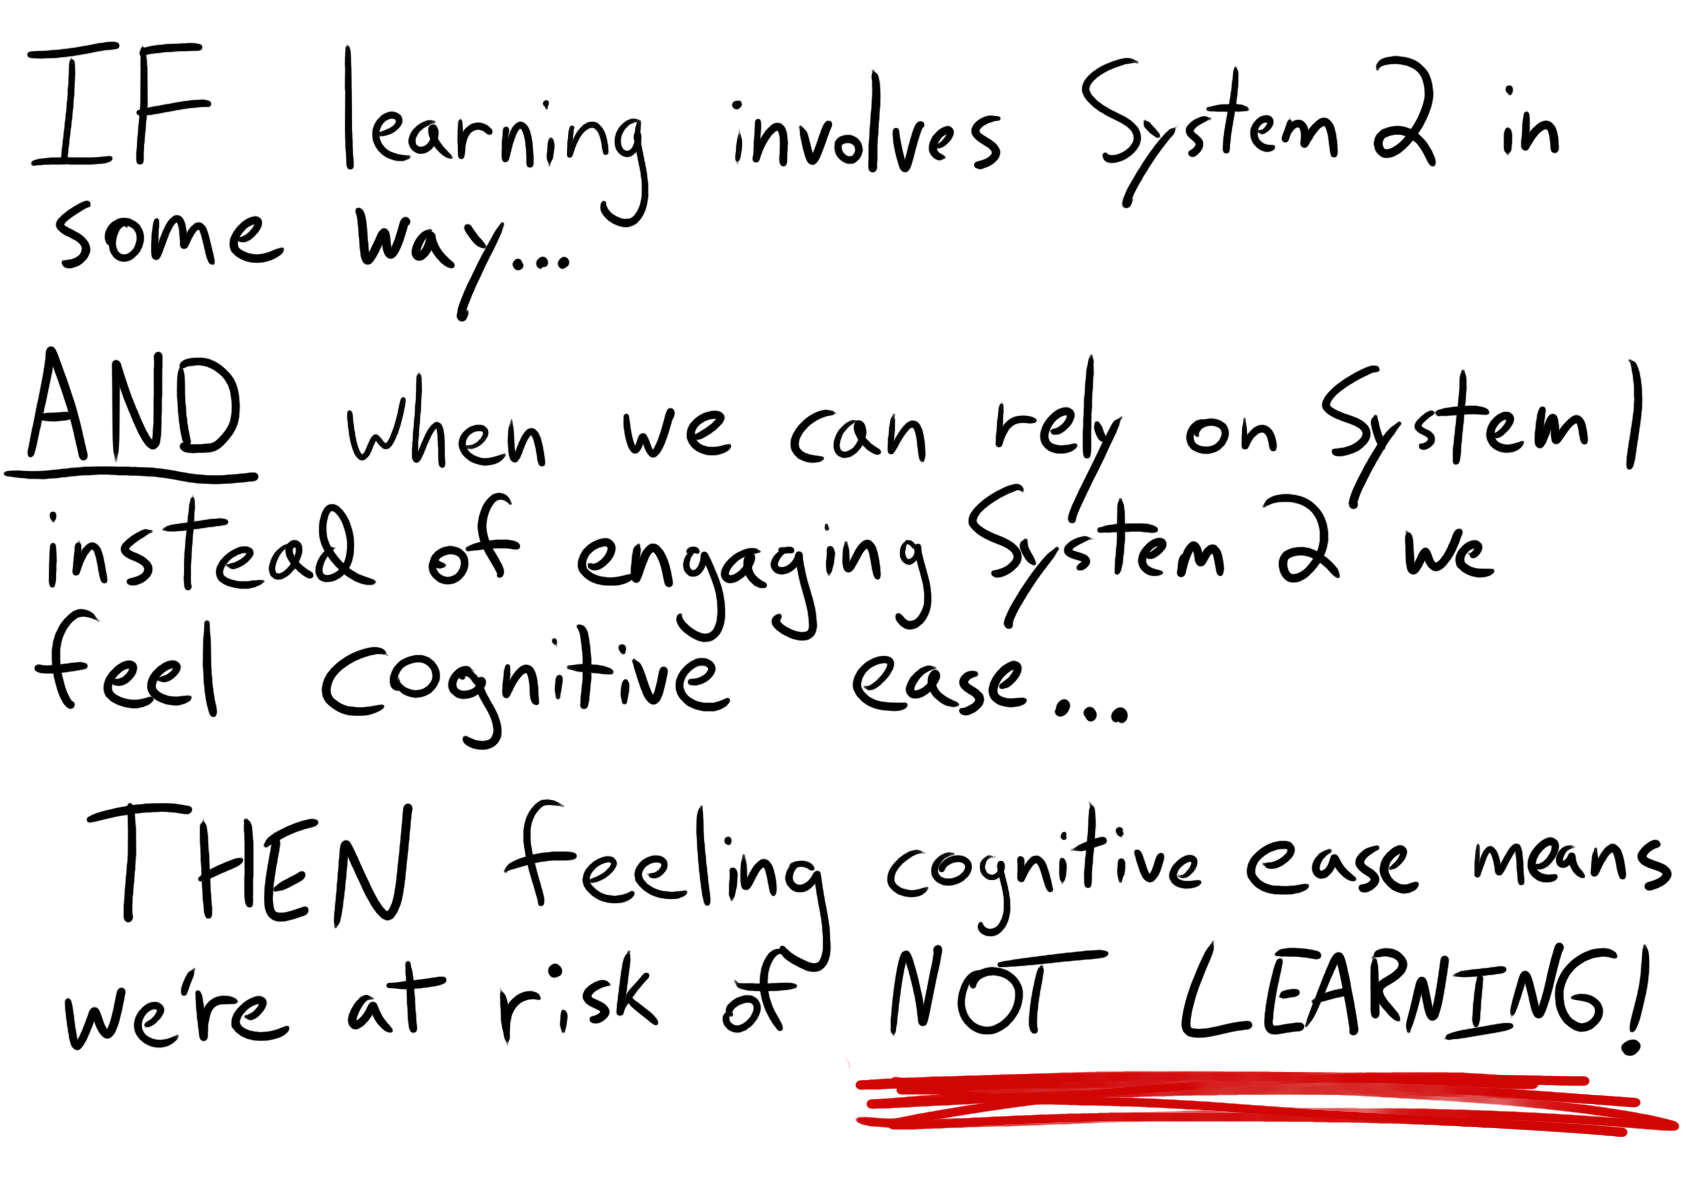 IF learning involves System 2 in
some way...
AND when we can rely on System 1
instead of engaging System 2 we
feel cognitive ease...
THEN feeling cognitive ease means
we're at risk of NOT LEARNING!